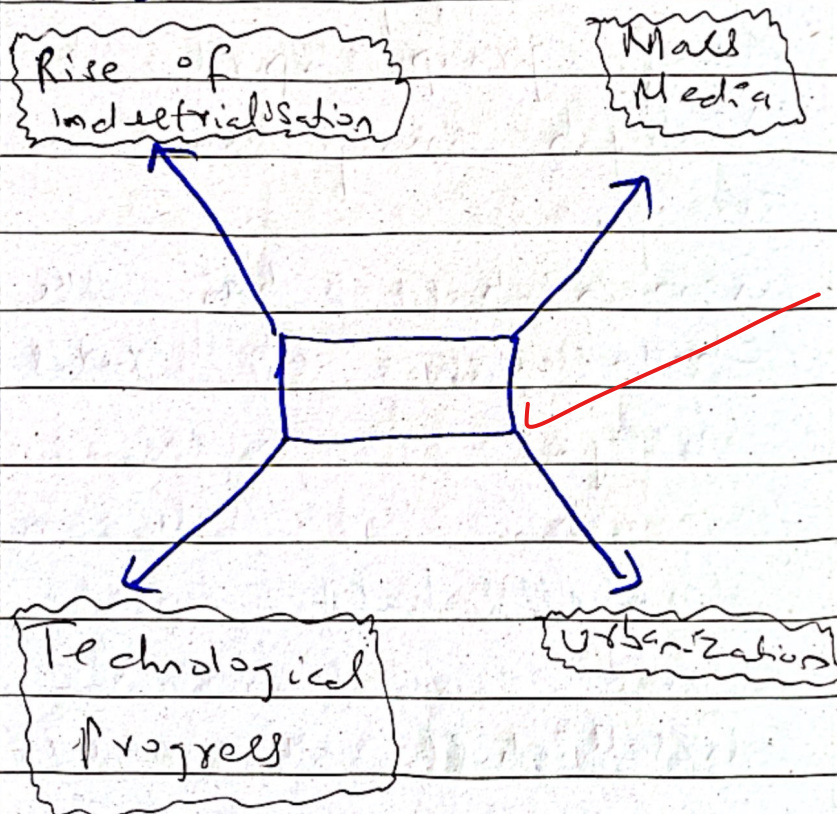 Rise of
industrialisation
Mass
Media
Technological
Progress
Urbanization